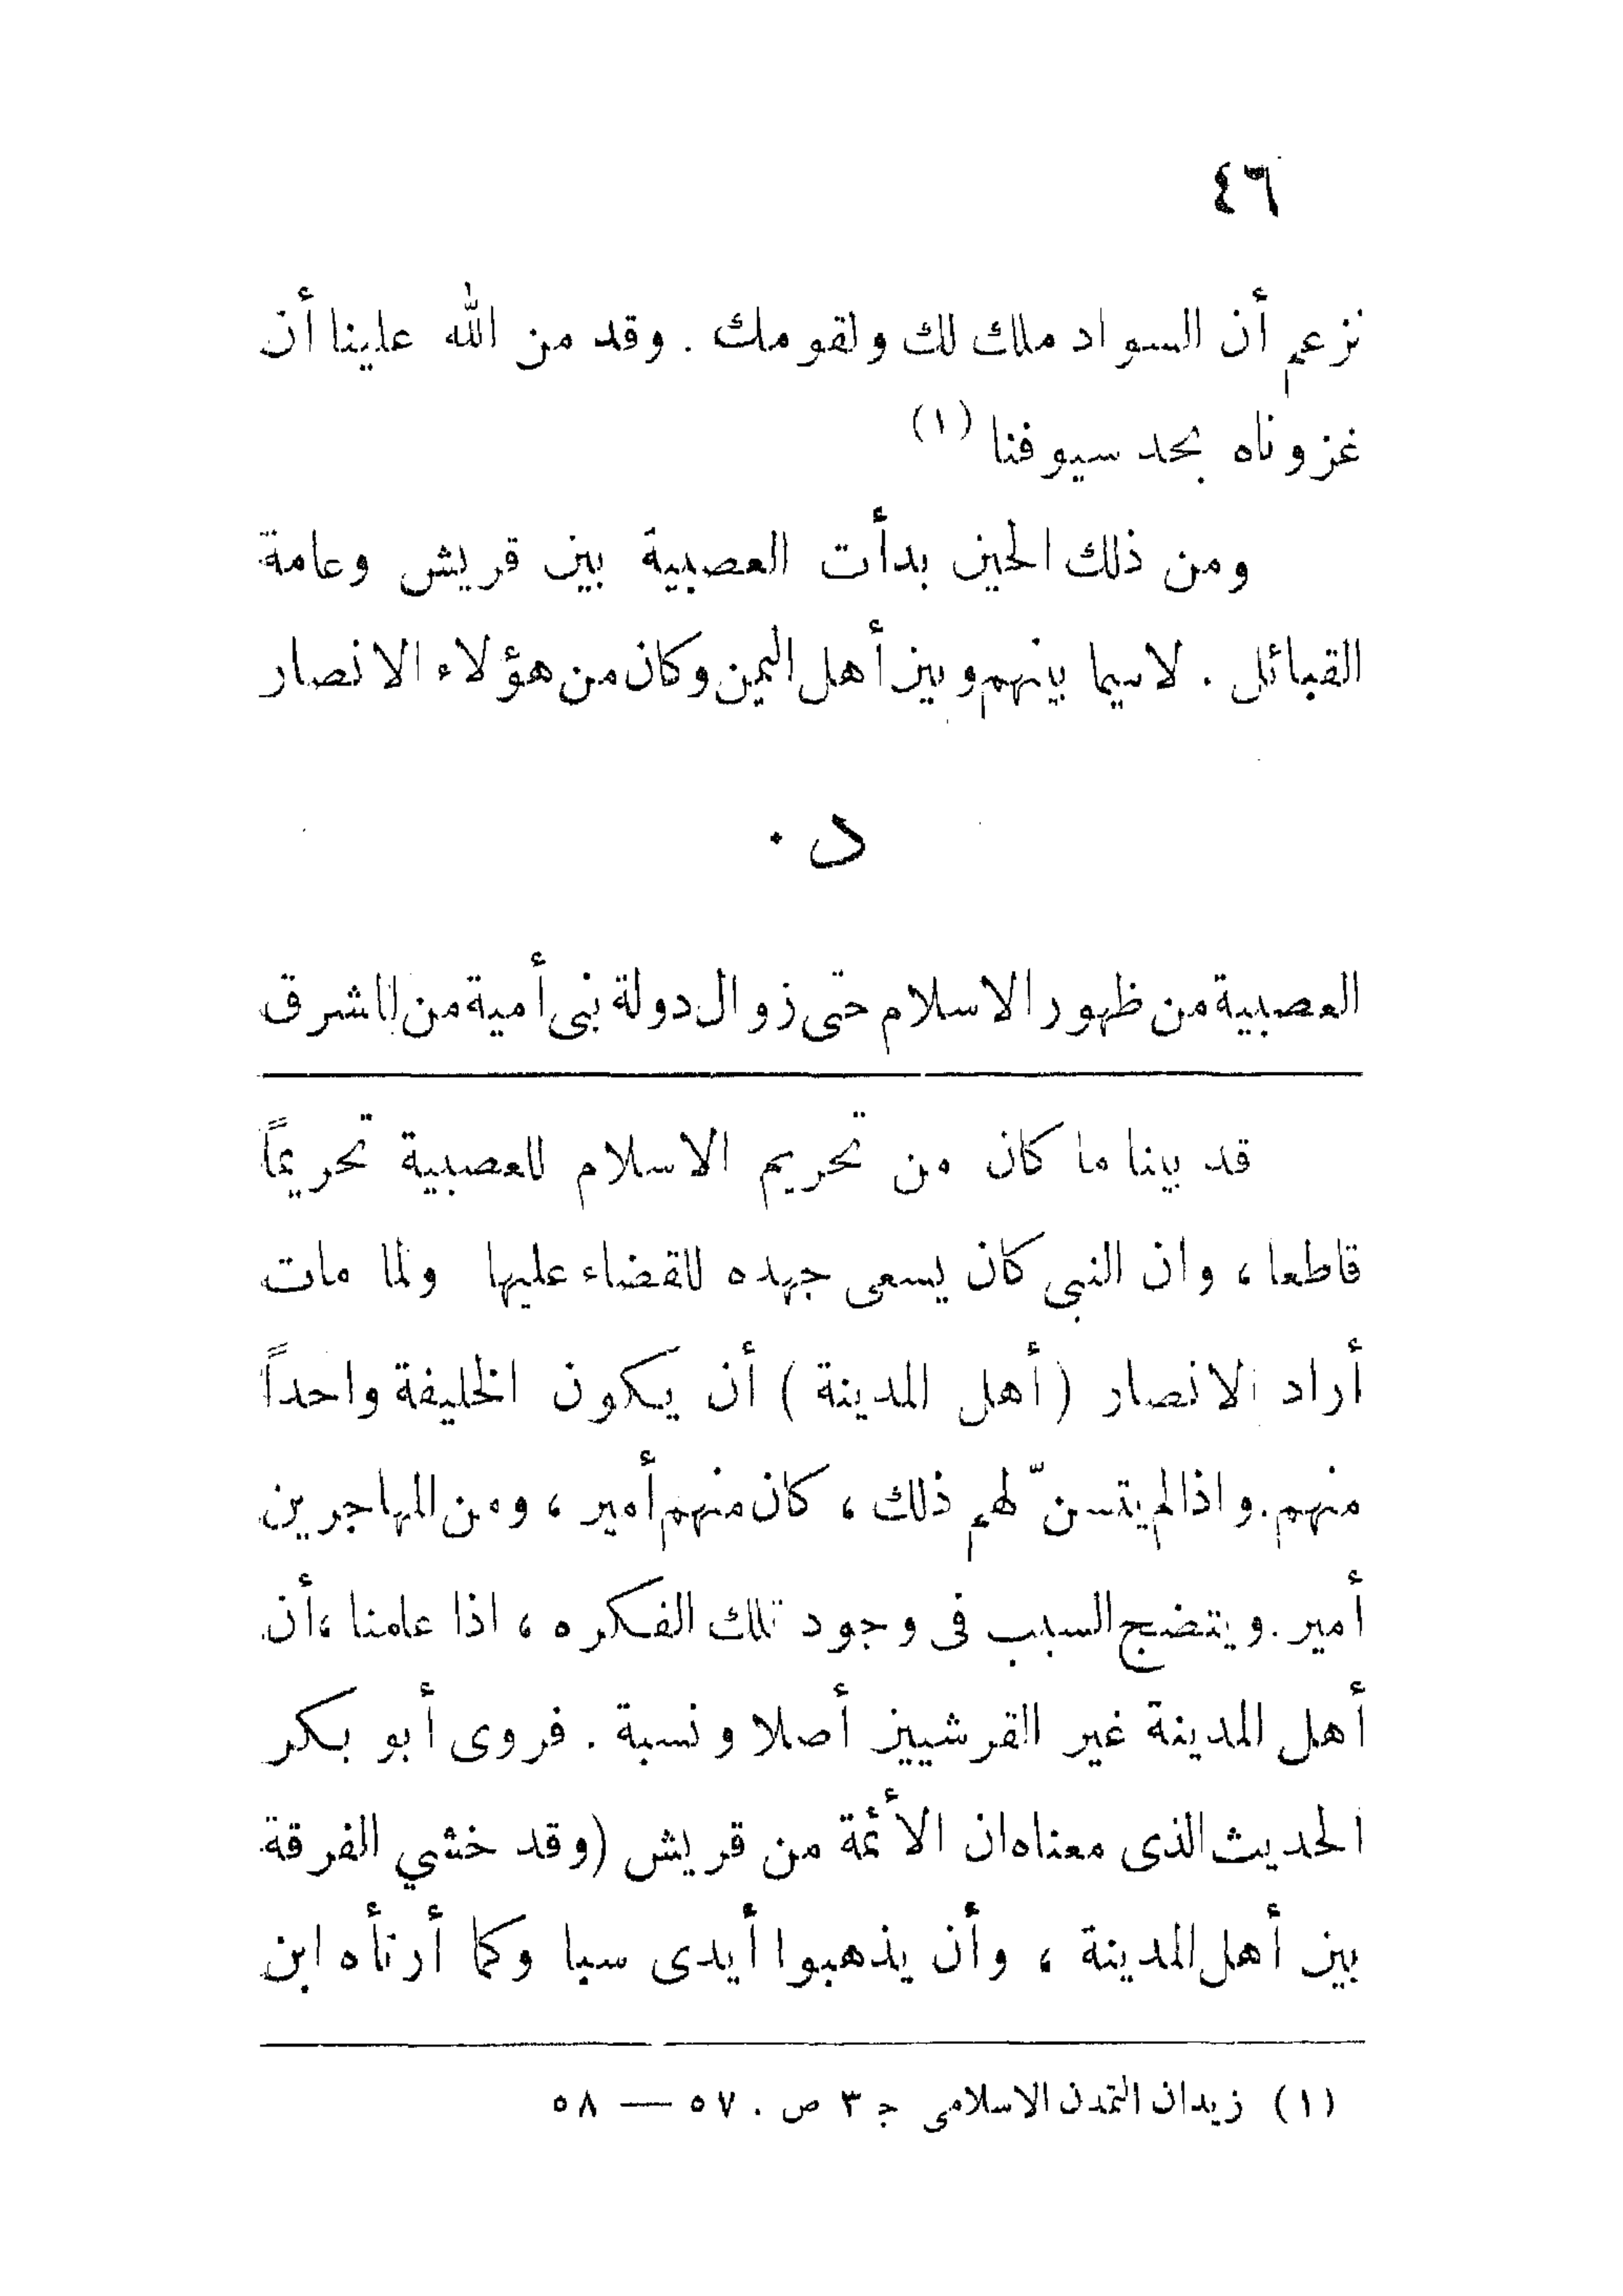 ٤٦
نزعم أن السواد ملك لك ولقومك . وقد من الله علينا أن
غزوناه بحد سيوفنا (١)
ومن ذلك الحين بدأت العصبية بين قريش وعامة
القبائل . لاسيما بينهم وبين أهل اليمن وكان من هؤلاء الانصار
د .
العصبية من ظهور الاسلام حتى زوال دولة بنى أمية من المشرق
قد بينا ما كان من تحريم الاسلام للعصبية تحريماً
قاطعا ، وان النبى كان يسعى جهده للقضاء عليها ولما مات
أراد الانصار ( أهل المدينة ) أن يكون الخليفة واحداً
منهم . واذا لم يتسنّ لهم ذلك ، كان منهم أمير ، ومن المهاجرين
أمير . ويتضج السبب فى وجود تلك الفكره ، اذا علمنا ، أن
أهل المدينة غير القرشيين أصلا ونسبة . فروى أبو بكر
الحديث الذى معناه ان الأئمة من قريش (وقد خشي الفرقة
بين أهل المدينة ، وأن يذهبوا أيدى سبا وكما أرتأه ابن
(١) زيدان التمدن الاسلامى ج ٣ ص . ٥٧ — ٥٨